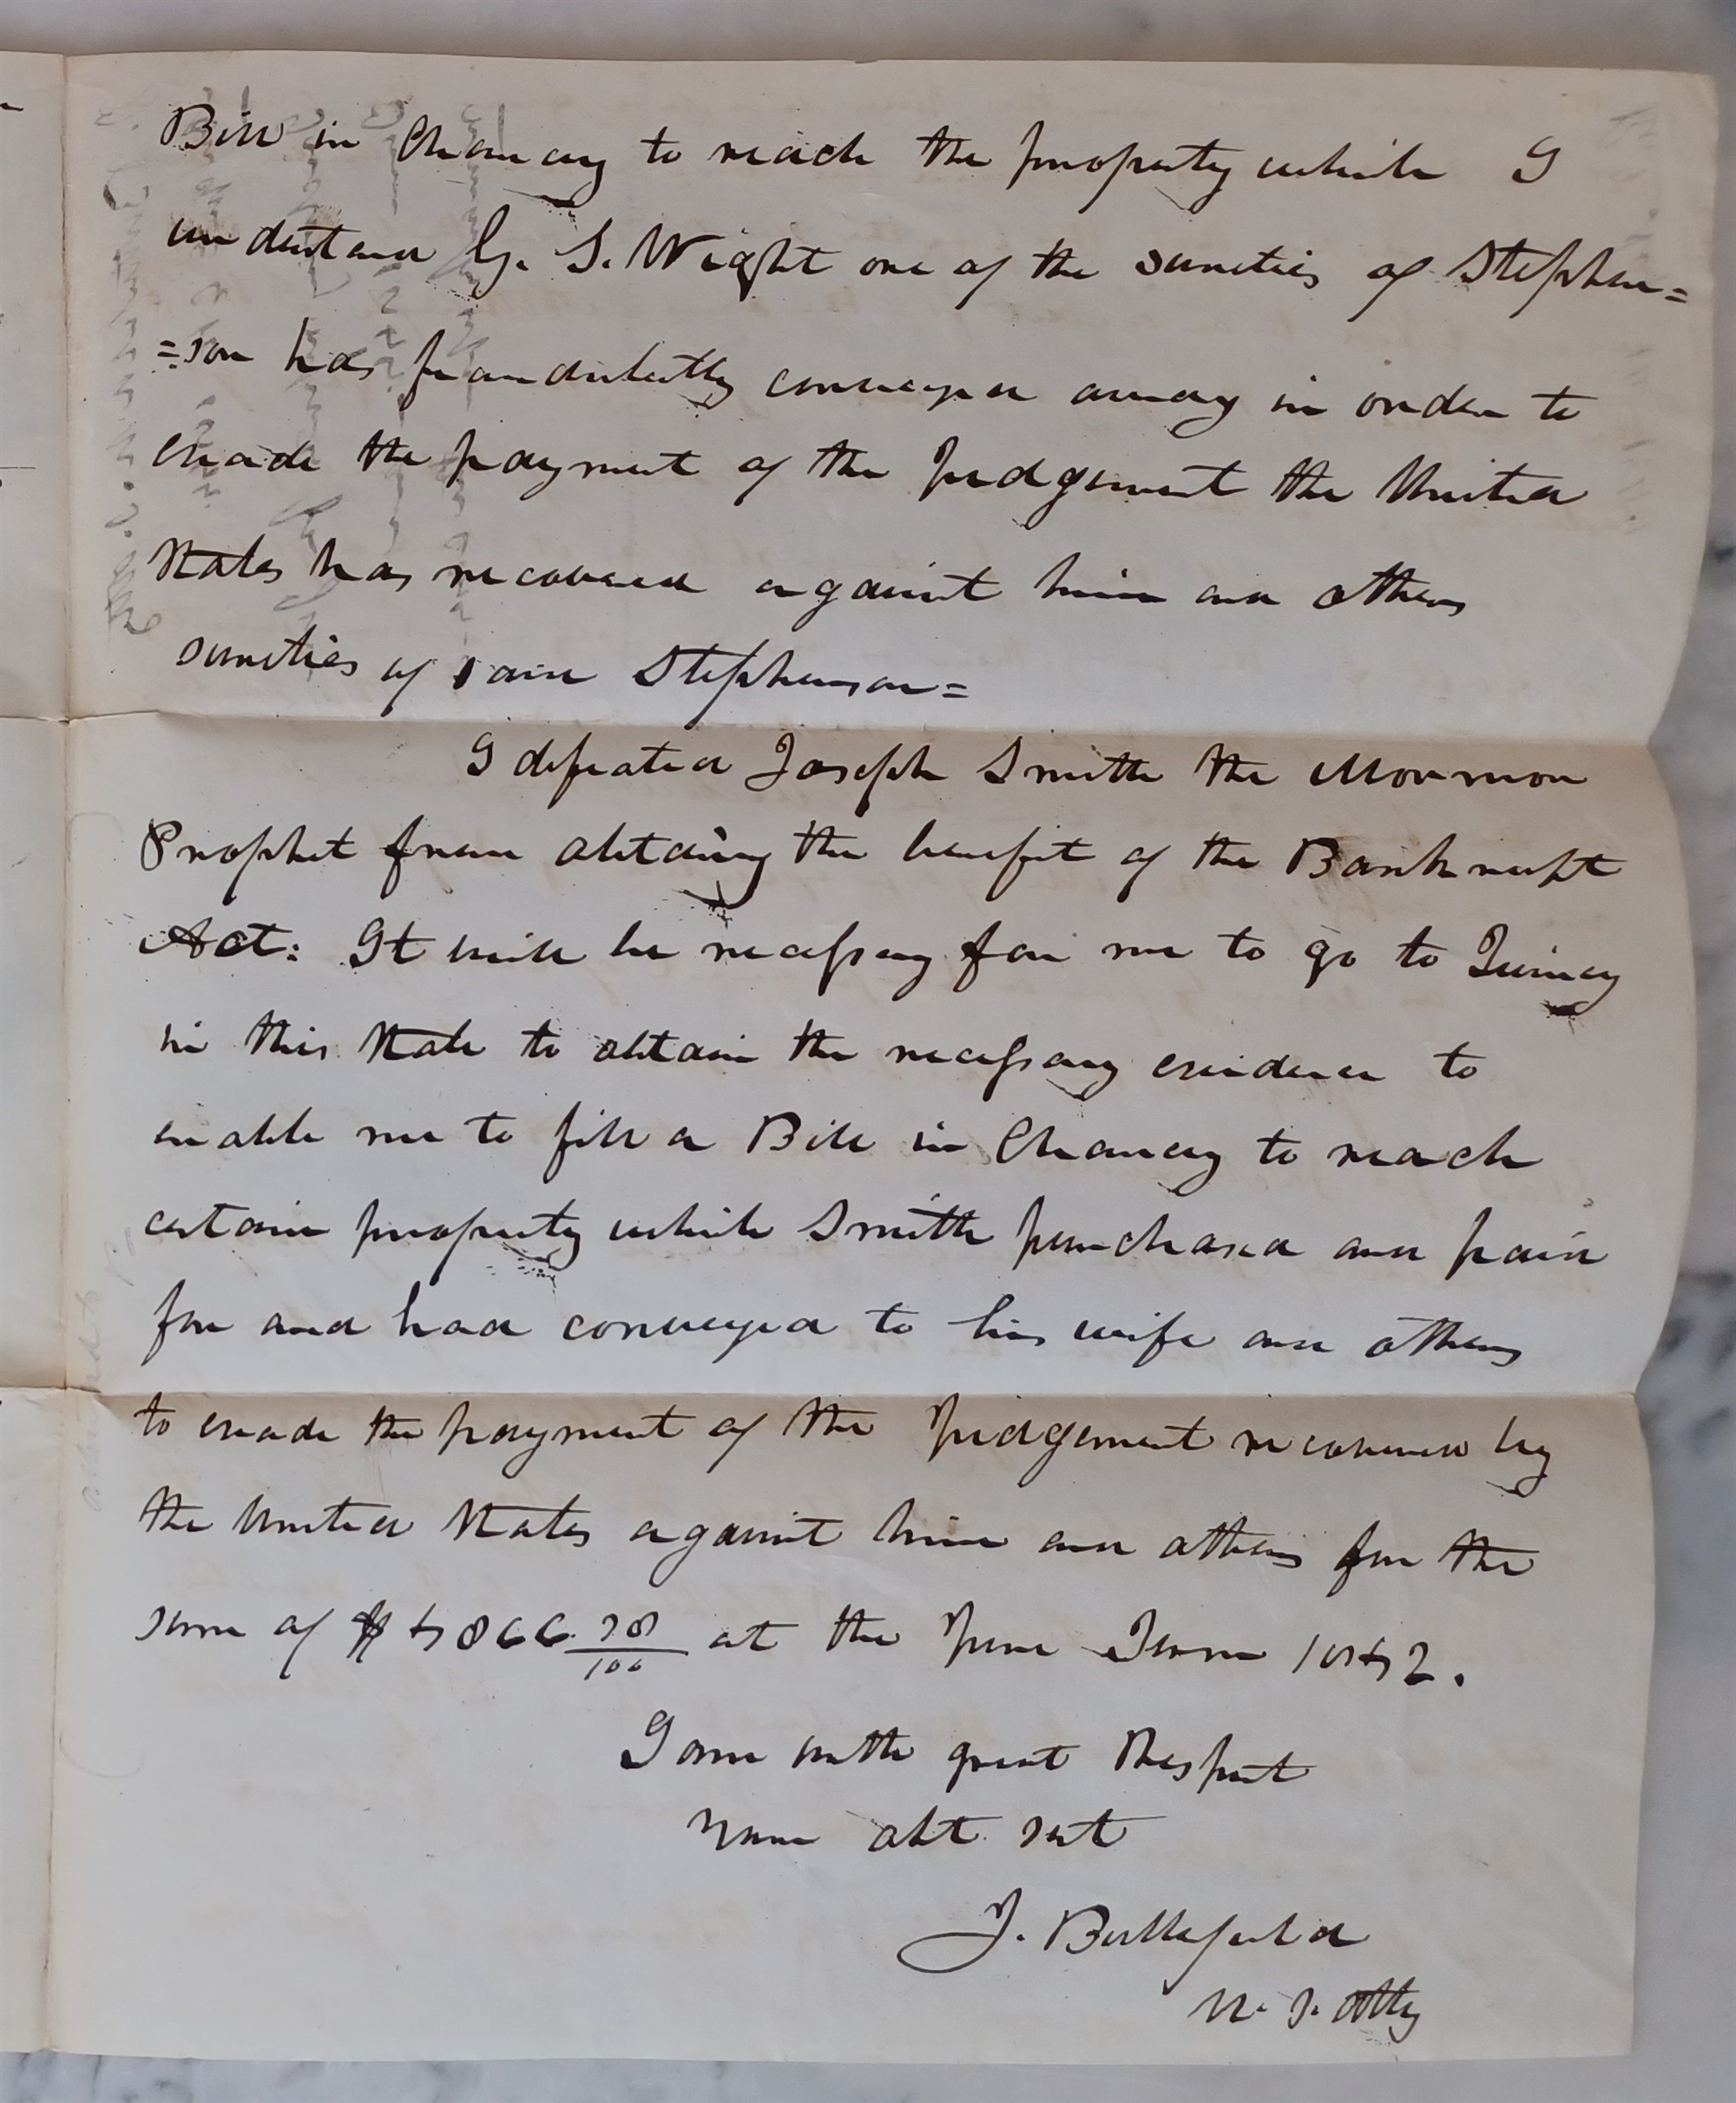 Bill in Chancery to reach the property which I
understand G. S. Wright one of the sureties of Stephen=
=son has fraudulently conveyed away in order to
evade the payment of the Judgement the United
States has recovered against him and others
sureties of said Stephenson=
I defeated Joseph Smith the Mormon
Prophet from obtaing the benefit of the Bankrupt
Act: It will be necessary for me to go to Quincy
in this State to obtain the necessary evidence to
enable me to file a Bill in Chancery to reach
certain property which Smith purchased and paid
for and had conveyed to his wife and others
to evade the payment of the Judgement recovered by
the United States against him and others for the
sum of $4866 38/100 at the June Term 1842.
I am with great Respect
Your obt. svt
J. Butterfield
U. S. Atty